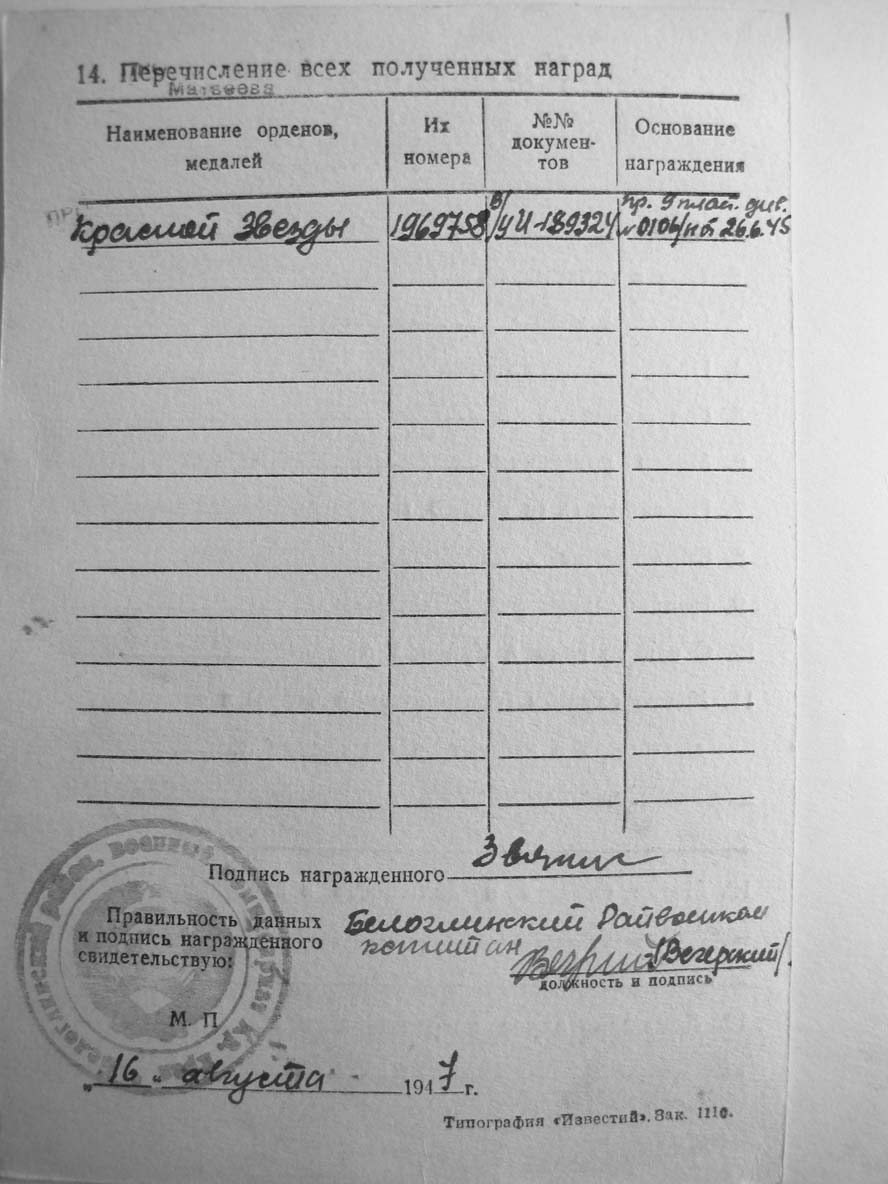 14. Перечисление всех полученных наград
Матвеева
Наименование орденов,
медалей
Их
номера
№№
докумен-
тов
Основание
награждения
Красной Звезды
1969758
в/уд-189324
пр. 9 плас. див.
№0104/н от 26.6.45
Подпись награжденного
Правильность данных
и подпись награжденного
свидетельствую:
Белоглинский Райвоенком
капитан
/Вегерский/
должность и подпись
М. П
„16" августа 1947 г.
Типография «Известий». Зак. 1110.